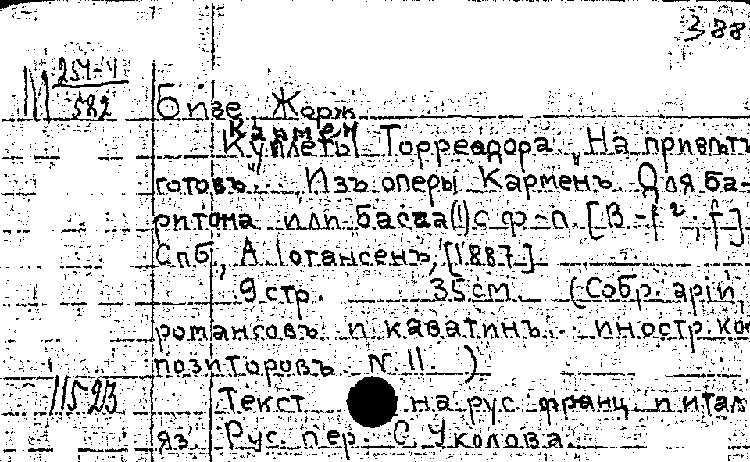 388
М 254-4
582
Бизе Жорж
Кармен
Куплеты Торреадора „На привѣтъ
готовъ" Изъ оперы Карменъ Для ба-
ритона или басса(!) с ф-п. [B-f²; f]
Спб., А. Іогансенъ, [1887]
9 стр. 35 см. (Собр. арій,
романсовъ и каватинъ иностр. ком
позиторовъ N 11. )
11523 Текст на рус. франц. и итал
яз. Рус. пер. С. Уколова.